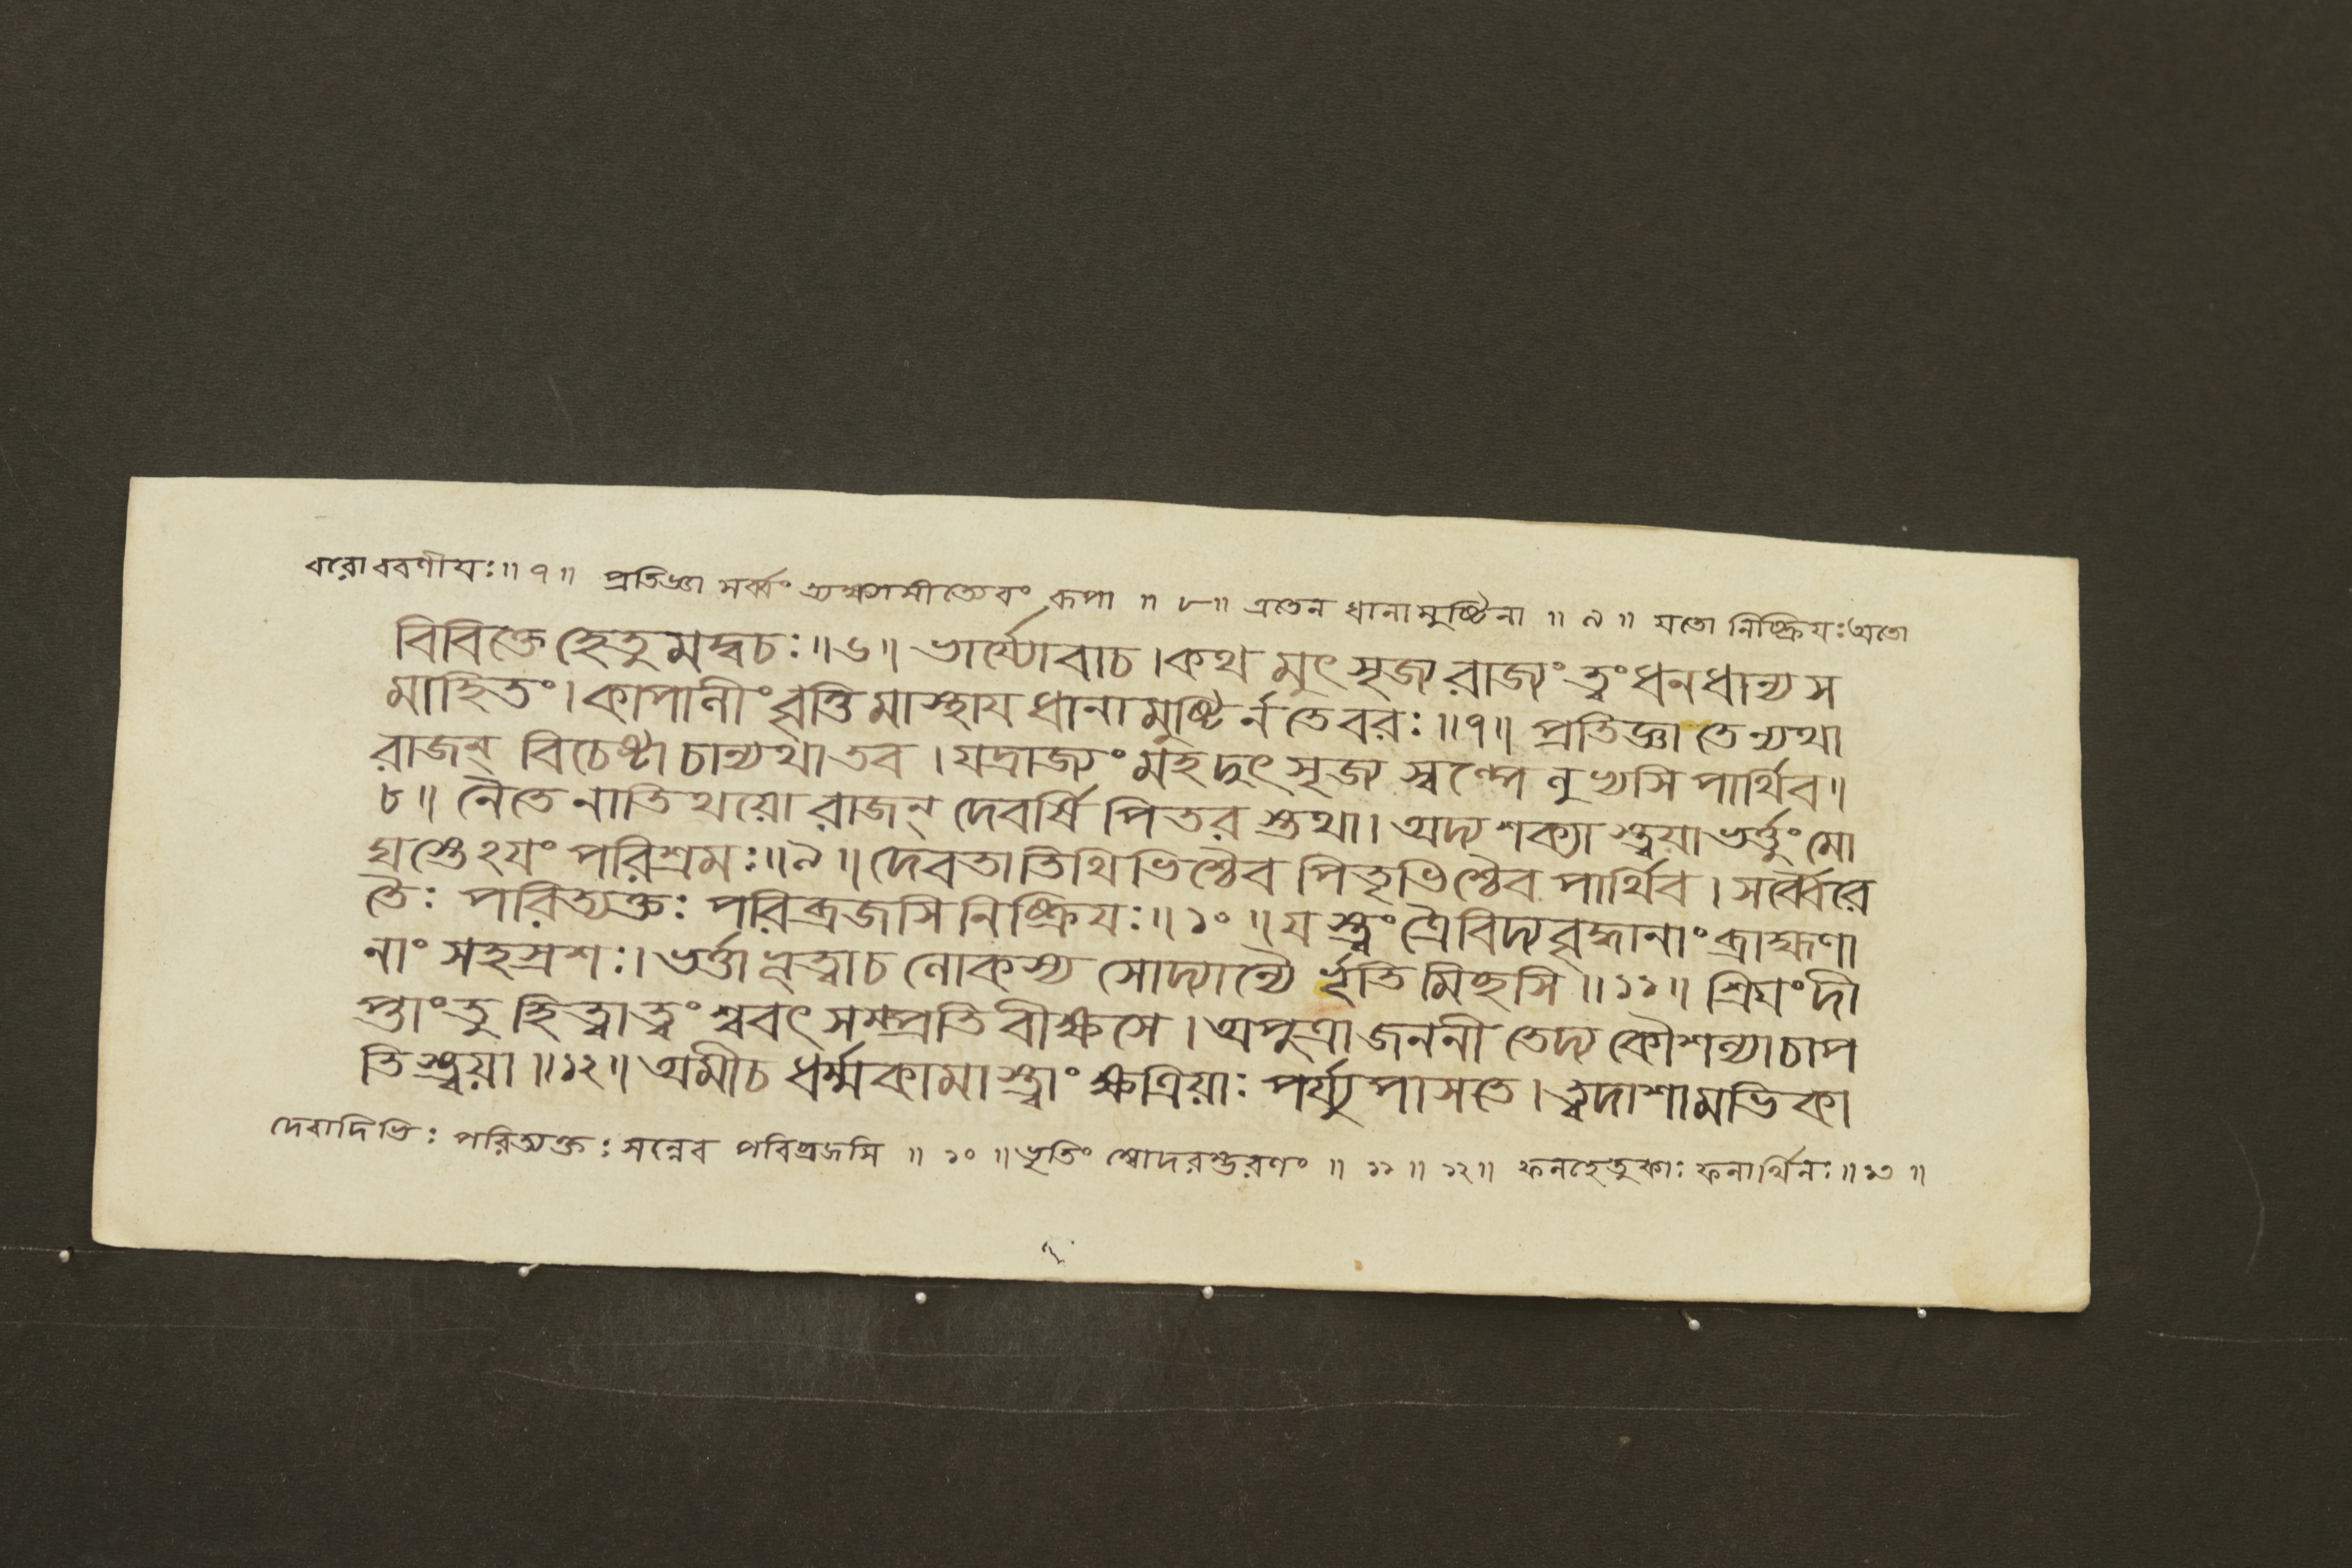 বরো ববণীযঃ॥ ৭॥ প্রতিজ্ঞা সর্ব্বং ত্যক্ষ্যামীত্যেবং রূপা ॥ ৮॥ এতেন ধানামুষ্টিনা ॥ ৯ ॥ যতো নিষ্ক্রিযঃঅতো
বিবিক্তে হেতু মদ্বচঃ॥৬॥ ভার্য্যোবাচ।কথ মুৎসৃজ্য রাজ্যং ত্বং ধনধান্য স
মাহিতং। কাপালীং বৃত্তি মাস্থায ধানামুষ্টি র্ন তে বরঃ॥৭॥ প্রতিজ্ঞা তেন্যথা
রাজন্ বিচেষ্টা চান্যথা তব । যদ্রাজ্যং মহদুৎসৃজ্য স্বল্পে লুভ্যসি পার্থিব॥
৮॥ নৈতে নাতিথয়ো রাজন্ দেবর্ষি পিতর স্তথা। অদ্য শক্যা স্ত্বয়া ভর্ত্তুং মো
ঘস্তেঽযং পরিশ্রমঃ॥৯॥ দেবতাতিথিভিশ্চৈব পিতৃভিশ্চৈব পার্থিব। সর্ব্বৈরে
তৈঃ পরিত্যক্তঃ পরিব্রজসি নিষ্ক্রিযঃ॥ ১০ ॥ য স্ত্বং ত্রৈবিদ্যবৃদ্ধানাং ব্রাহ্মণা
নাং সহস্রশঃ। ভর্ত্তা ভূত্বা চ লোকস্য সোদ্যান্যৈ র্ভৃতি মিচ্ছসি ॥১১॥ শ্রিযং দী
প্তাং তু হিত্বা ত্বং শ্ববৎ সম্প্রতি বীক্ষ্যসে। অপুত্রা জননী তেদ্য কৌশল্যা চাপ
তি স্ত্বয়া ॥১২॥ অমী চ ধর্ম্মকামা স্ত্বাং ক্ষত্রিয়াঃ পর্য্যুপাসতে। ত্বদাশামভিকা
দেবাদিভিঃ পরিত্যক্তঃ সন্নেব পবিব্রজসি ॥ ১০ ॥ ভৃতিং স্বোদরম্ভরণং ॥ ১১ ॥ ১২॥ ফলহেতুকাঃ ফলার্থিনঃ॥১৩॥